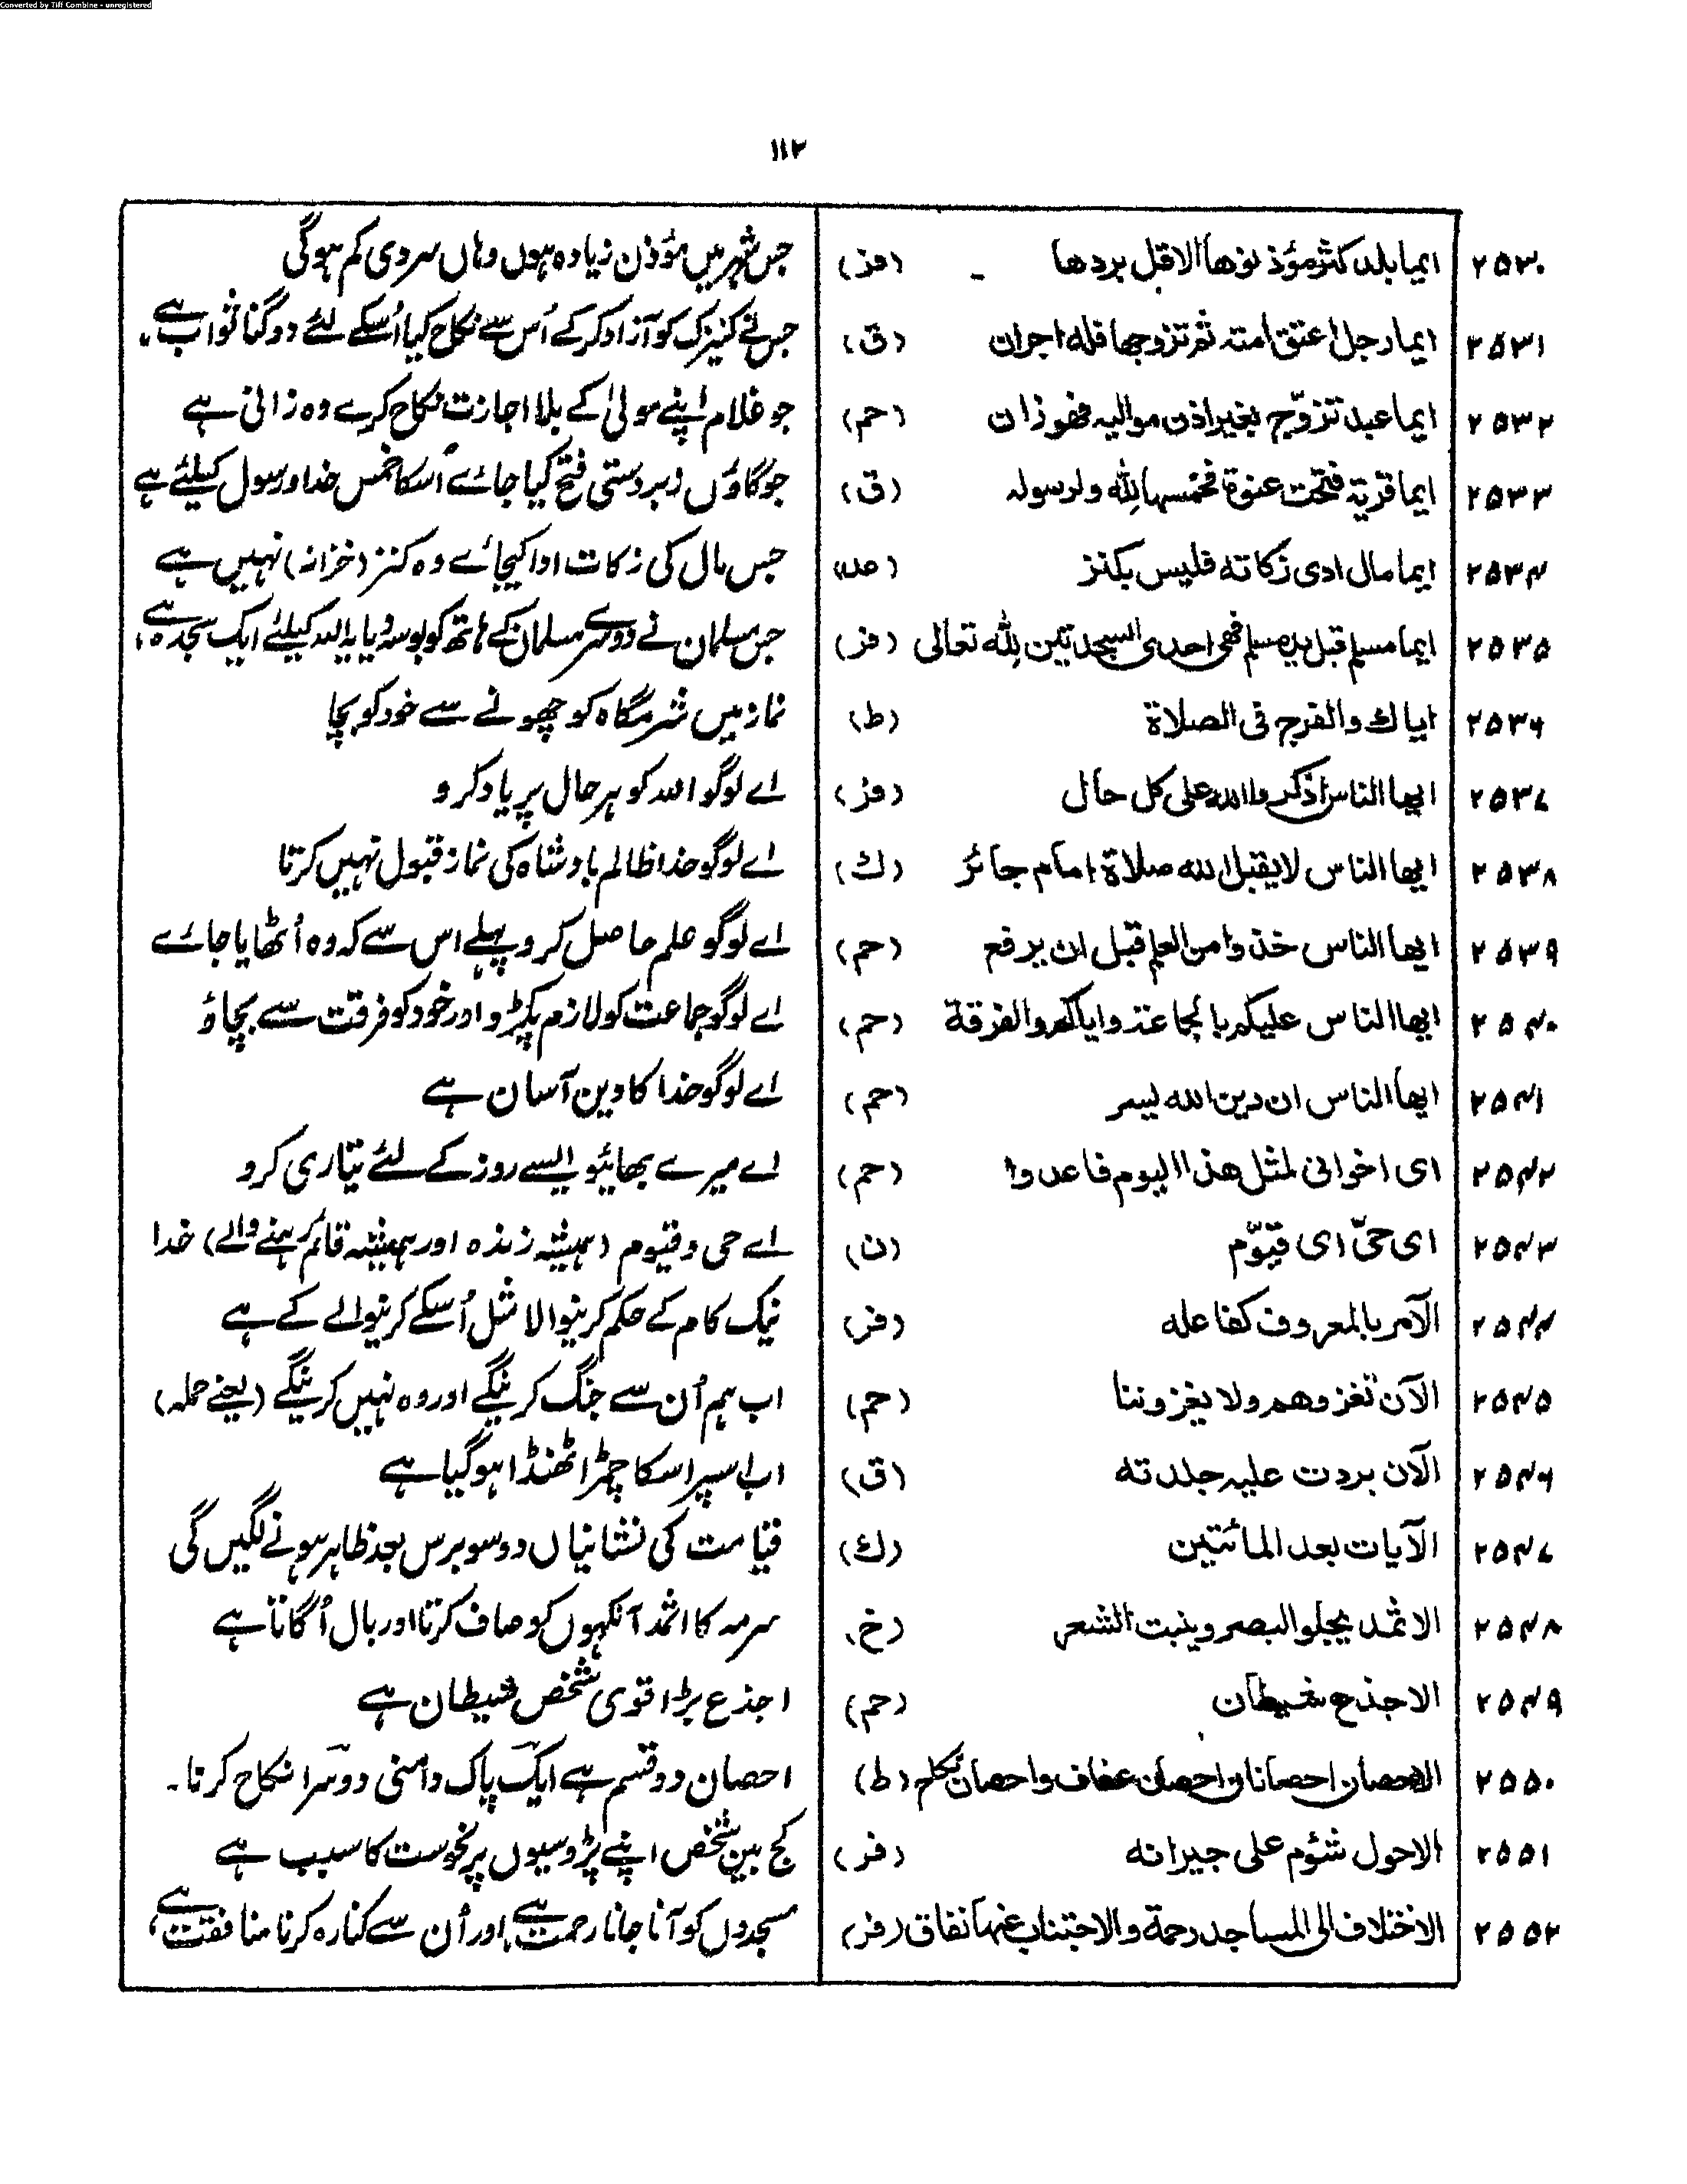 Converted by Tiff Combine - unregistered
۱۱۲
۲۵۳۰ ایما بلدہ کثر مؤذنوھا الا قل بردھا - (فر) جس شہر میں مؤذن زیادہ ہوں وہاں سردی کم ہوگی
۲۵۳۱ ایما رجل اعتق امتہ ثم تزوجھا فلہ اجران (ق) جس نے کنیزک کو آزاد کر کے اُس سے نکاح کیا اُسکے لئے دوگنا ثواب ہے۔
۲۵۳۲ ایما عبد تزوّج بغیر اذن موالیہ فھو زان (حم) جو غلام اپنے مولیٰ کے بلا اجازت نکاح کرے وہ زانی ہے
۲۵۳۳ ایما قریۃ فتحت عنوۃ فخمسہا للہ ولرسولہ (ق) جو گاؤں زبردستی فتح کیا جائے اُسکا خمس خدا و رسول کیلئے ہے
۲۵۳۴ ایما مال ادی زکاتہ فلیس بکنز (عد) جس مال کی زکات ادا کیجائے وہ کنز (خزانہ) نہیں ہے
۲۵۳۵ ایما مسلم قبل ید مسلم فھی احدی السجدتین للہ تعالی (فر) جس مسلمان نے دوسرے مسلمان کے ہاتھ کو بوسہ دیا یہ اللہ کیلئے ایک سجدہ ہے،
۲۵۳۶ ایاك والفرج فی الصلاۃ (ط) نماز میں شرمگاہ کو چھونے سے خود کو بچا
۲۵۳۷ ایھا الناس اذکروا اللہ علی کل حال (فر) اے لوگو اللہ کو ہر حال پر یاد کرو
۲۵۳۸ ایھا الناس لا یقبل اللہ صلاۃ امام جائر (ك) اے لوگو خدا ظالم بادشاہ کی نماز قبول نہیں کرتا
۲۵۳۹ ایھا الناس خذوا من العلم قبل ان یرفع (حم) اے لوگو علم حاصل کرو پہلے اس سے کہ وہ اُٹھایا جائے
۲۵۴۰ ایھا الناس علیکم بالجماعۃ وایاکم والفرقۃ (حم) اے لوگو جماعت کو لازم پکڑو اور خود کو فرقت سے بچاؤ
۲۵۴۱ ایھا الناس ان دین اللہ لیسر (حم) اے لوگو خدا کا دین آسان ہے
۲۵۴۲ ای اخوانی لمثل ھذا الیوم فاعدوا (حم) اے میرے بھائیو ایسے روز کے لئے تیاری کرو
۲۵۴۳ ای حیّ ای قیّوم (ن) اے حی و قیوم (ہمیشہ زندہ اور ہمیشہ قائم رہنے والے) خدا
۲۵۴۴ الآمر بالمعروف کفاعلہ (فر) نیک کام کے حکم کرنیوالا مثل اُسکے کرنیوالے کے ہے
۲۵۴۵ الآن نغزوھم ولا یغزوننا (حم) اب ہم اُن سے جنگ کرینگے اور وہ نہیں کرینگے (یعنے حملہ)
۲۵۴۶ الآن بردت علیہ جلدتہ (ق) اب اسپر اسکا چمڑا ٹھنڈا ہوگیا ہے
۲۵۴۷ الآیات بعد المائتین (ك) قیامت کی نشانیاں دو سو برس بعد ظاہر ہونے لگیں گی
۲۵۴۸ الاثمد یجلو البصر وینبت الشعر (خ) سرمہ کا اثمد آنکھوں کو صاف کرتا اور بال اُگاتا ہے
۲۵۴۹ الاجذع شیطان (حم) اجذع بڑا قوی شخص شیطان ہے
۲۵۵۰ الاحصان احصانان احصان عفاف واحصان نکاح (ط) احصان دو قسم ہے ایک پاک دامنی دوسرا نکاح کرنا۔
۲۵۵۱ الاحول شؤم علی جیرانہ (فر) کج بین شخص اپنے پڑوسیوں پر نحوست کا سبب ہے
۲۵۵۲ الاختلاف الی المساجد رحمۃ والاجتناب عنہا نفاق (فر) مسجدوں کو آنا جانا رحمت ہے، اور اُن سے کنارہ کرنا منافقت ہے،